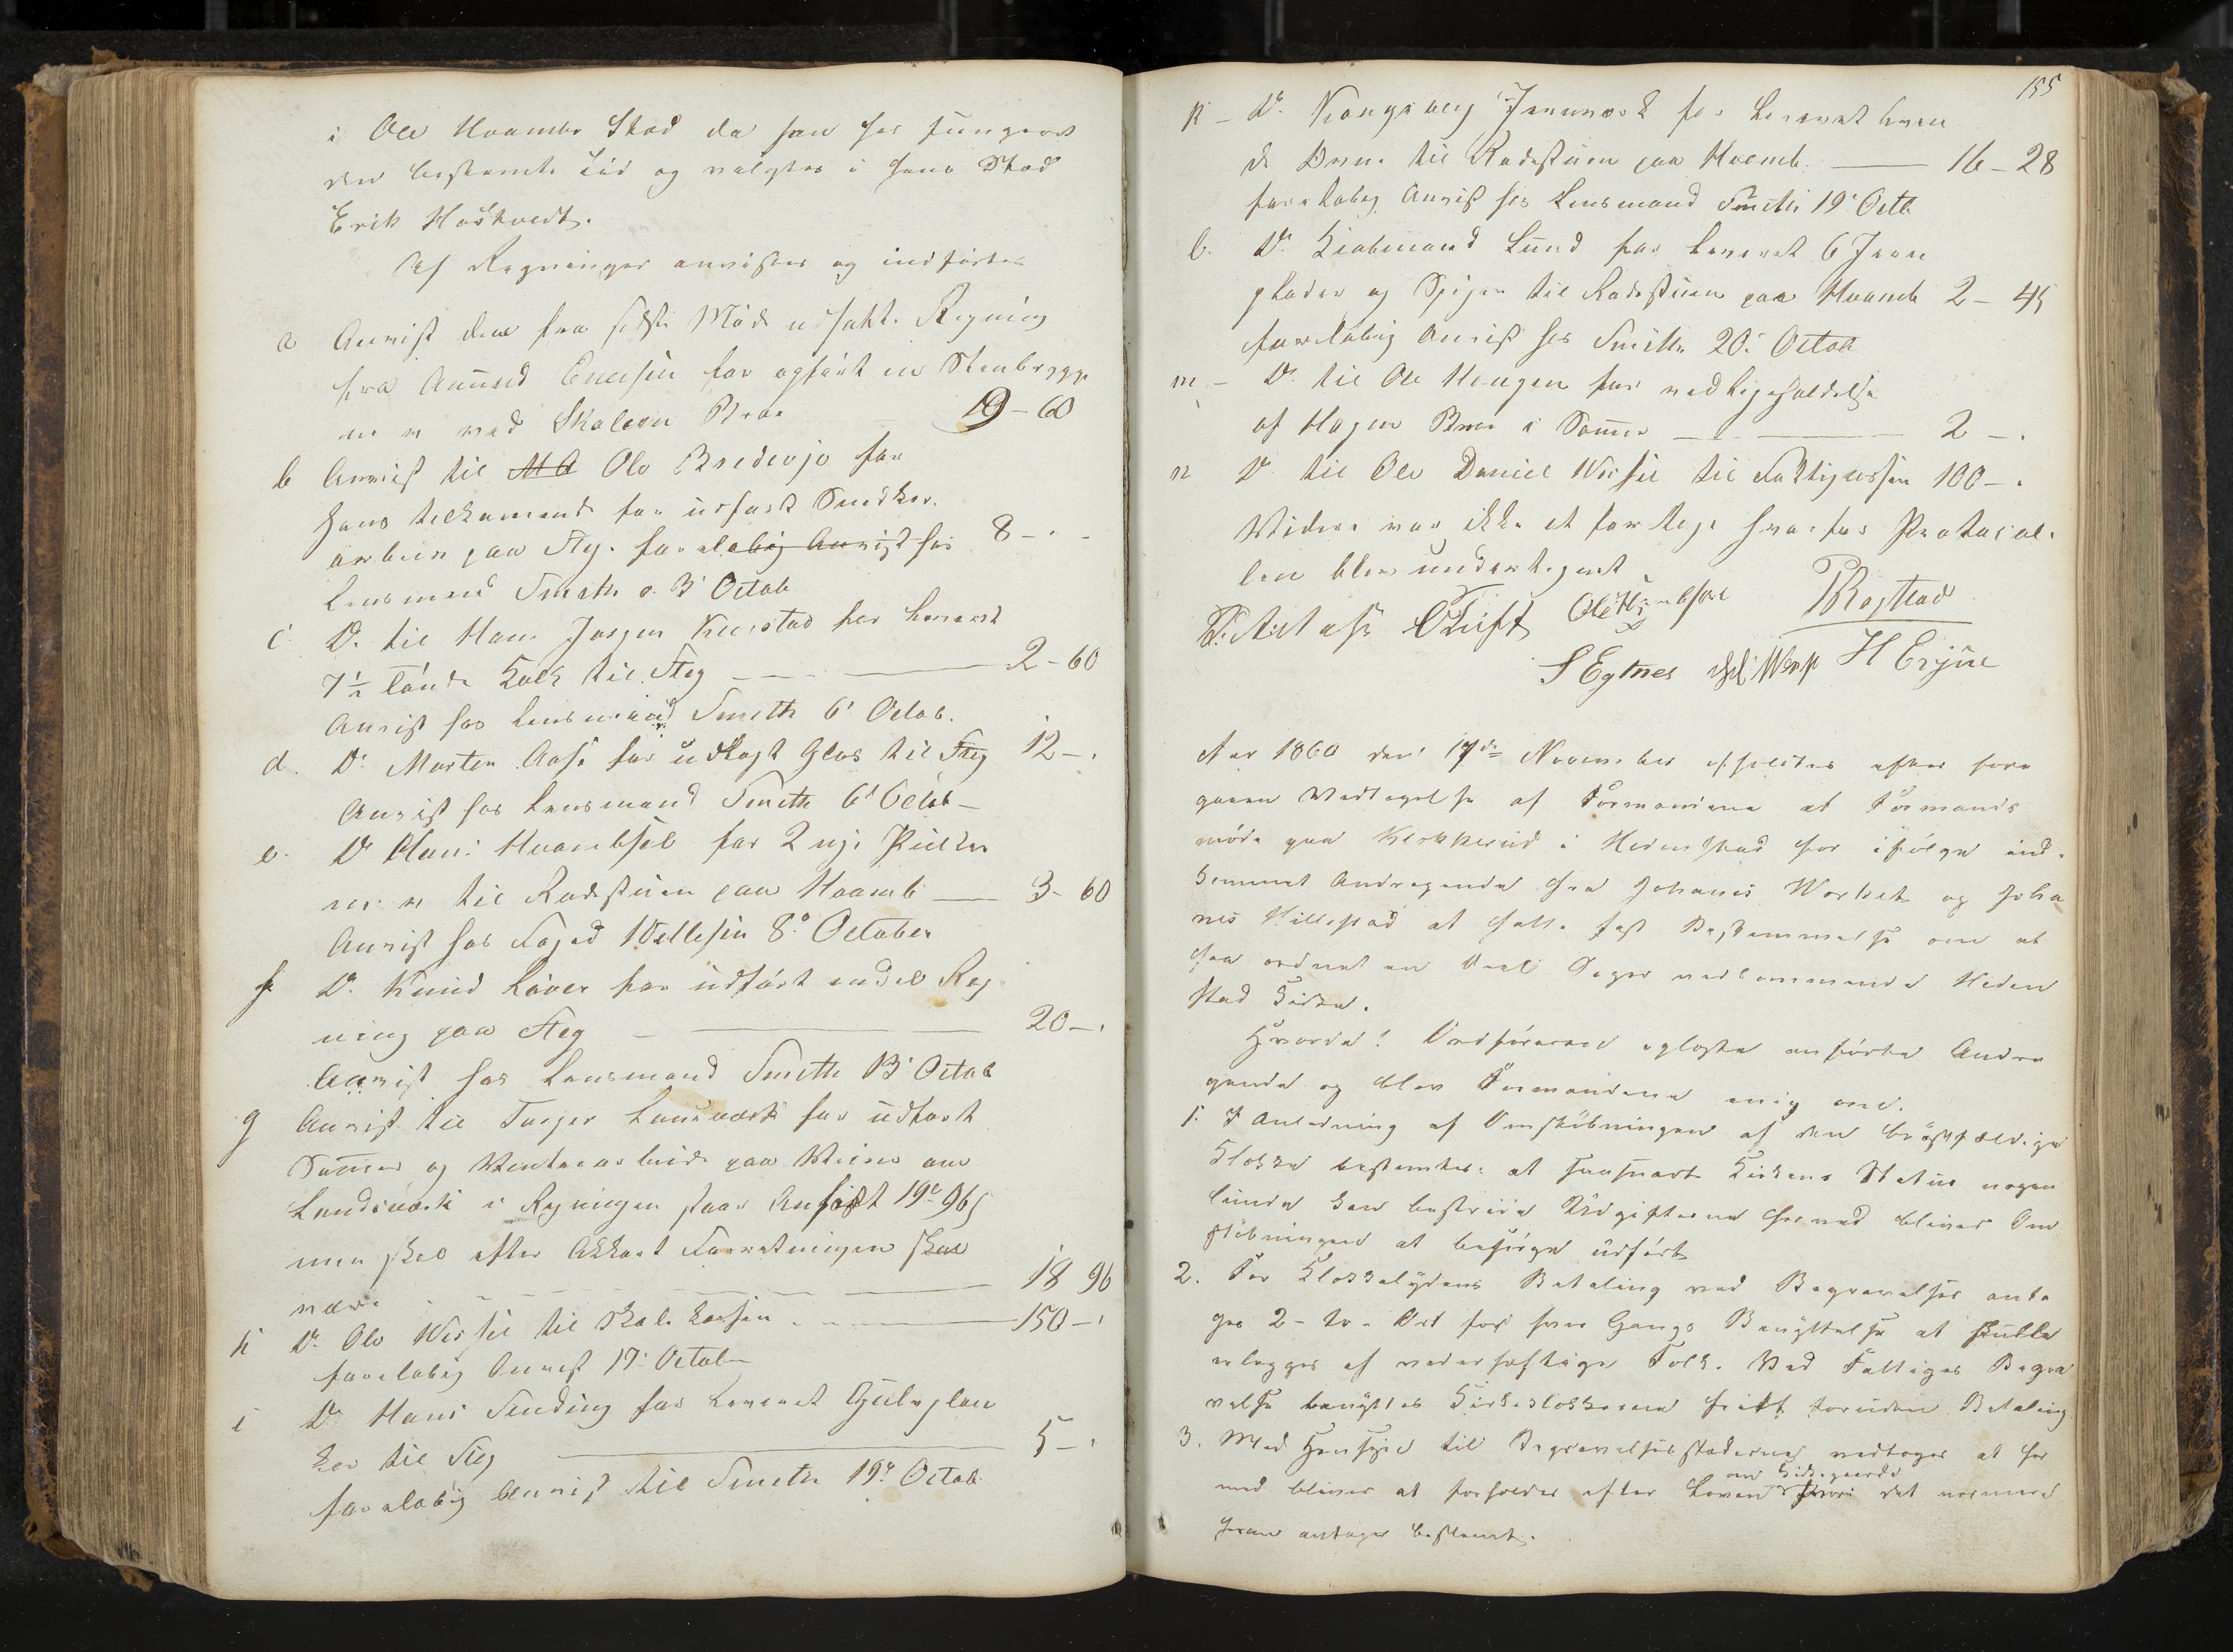 i Ole Hvambs Stad da han har fungeret
den bestemte Tid og valgtes i hans Stad
Erik Høstvedt.
Af Regninger anvistes og indførtes
a Anvist den fra sidste Møde udsatte Regning
fra Amund Enersen for opført en Stenbrygge
m m ved Skaleen Broe 19-60
b Anvist til Ole Bredevje for
hans tilkommende for udført Snedker
arbeide paa Steg. foreløbig Anvist hos 8-"-
Lensmand Smith d. 3' Octob
c D. til Hans Jørgen Kierstad for leveret
7½ Tønde Kalk til Steg 2-60
Anvist hos Lensmand Smith 6' Octob.
d. Do Morten Aase for udlagt Glas til Steg 12-"
Anvist hos Lensmand Smith 6' Octob-
e. Do Hans Hvambsel for 2 nye Pulter
m. m til Rådstuen paa Hvamb 3-60
Anvist hos Foged Willesen 8de October
f Do Knud Løver for udført endel Reg
ning paa Steg 20-"
Anvist hos Lensmand Smith 13' Octob
g Anvist til Torger Landsverk for udført
Sommer og Vinterarbeide paa Veien om
Landsverk i Regningen staar Anført 19-96
men skal efter Akkort Forretningen skal
være 18 96
h Do Ole til Skolekassen 150-"
foreløbig Anvist 17' Octob
i Do Hans Sending for Leveret Gulvplan
ker til Steg 5-"
foreløbig Anvist til Smith 19de Octob
155
k - Do Kongsberg Jernværk for Leveret
Ovne til Radstuen paa Hvamb 16-28
foreløbig Anvist hos Lensmand Smith 19' Octb
l. Do Kiøbmand Lund for Leveret 6 Jern
plader og Spiger til Radstuen paa Hvamb 2-45
foreløbig Anvist hos Smith 20' Octob
m - Do til Ole Haugen for vedligeholdelse
af Hagen Broe i Sommer 2-"
n Do til Ole Daniel til Fattigkassen 100-"
Videre var ikke at foretage hvorfor Protocol-
len blev undertegnet
OTuft PRogstad
S Egtnes H Erjue
Aar 1860 den 17de November afholdtes efter fore
gaaen Vedtagelse af Formændene et Formands
møde paa Klokkerud i Hedenstad for ifølge ind-
kommet Andragende fra Johanes Værket og Joha
nes Hillestad at fatte fast Bestemmelse om at
faa ordnet en Deel Sager vedkommende Heden
stad Kirke.
Hvorda! Ordføreren oplæste anførte Andra
gende og blev Formændene enig om.
1. I Anledning af Omstøbningen af den brøstfældige
Klokke bestemtes: at saasnart Kirkens Status nogen
lunde kan bestride Udgifterne herved bliver Om
støbningen at besørge udført
2. For Klokkelydens Betaling ved Begravelser anta
ges 2-to-Ort for hver Gangs Benyttelse at skulle
erlægges af vederhæftige Folk. Ved Fattiges Begra
velse benyttes Kirkeklokkerne frit foruden Betaling
3. Med Hensyn til Begravelsesstæderne vedtages at her
om Kirkegaarde
med bliver at forholdes efter Loven hvori det nærmere
herom antages bestemt.